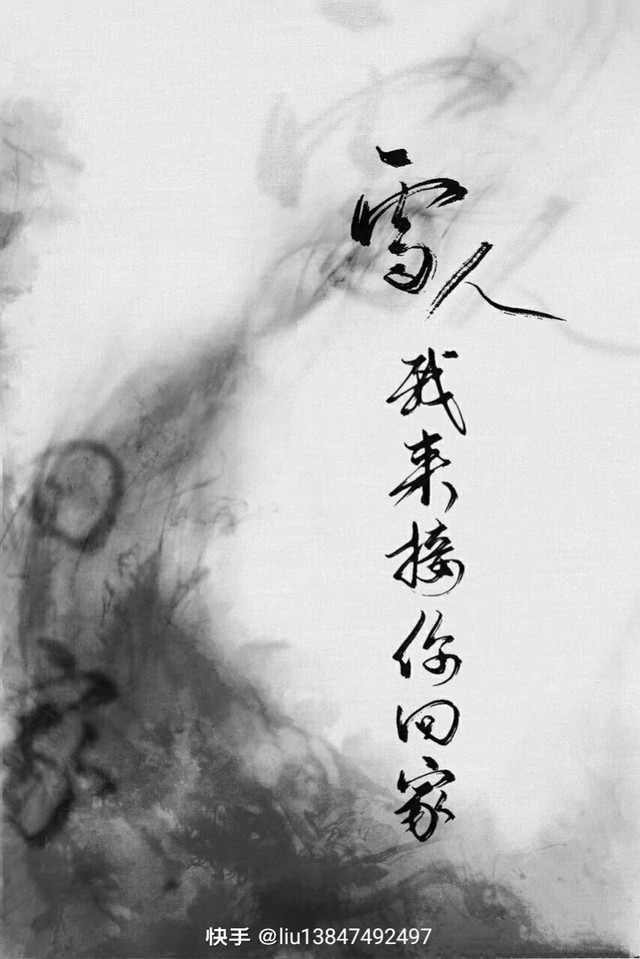 雪人
我来接你回家
回
家
快手 @liu13847492497